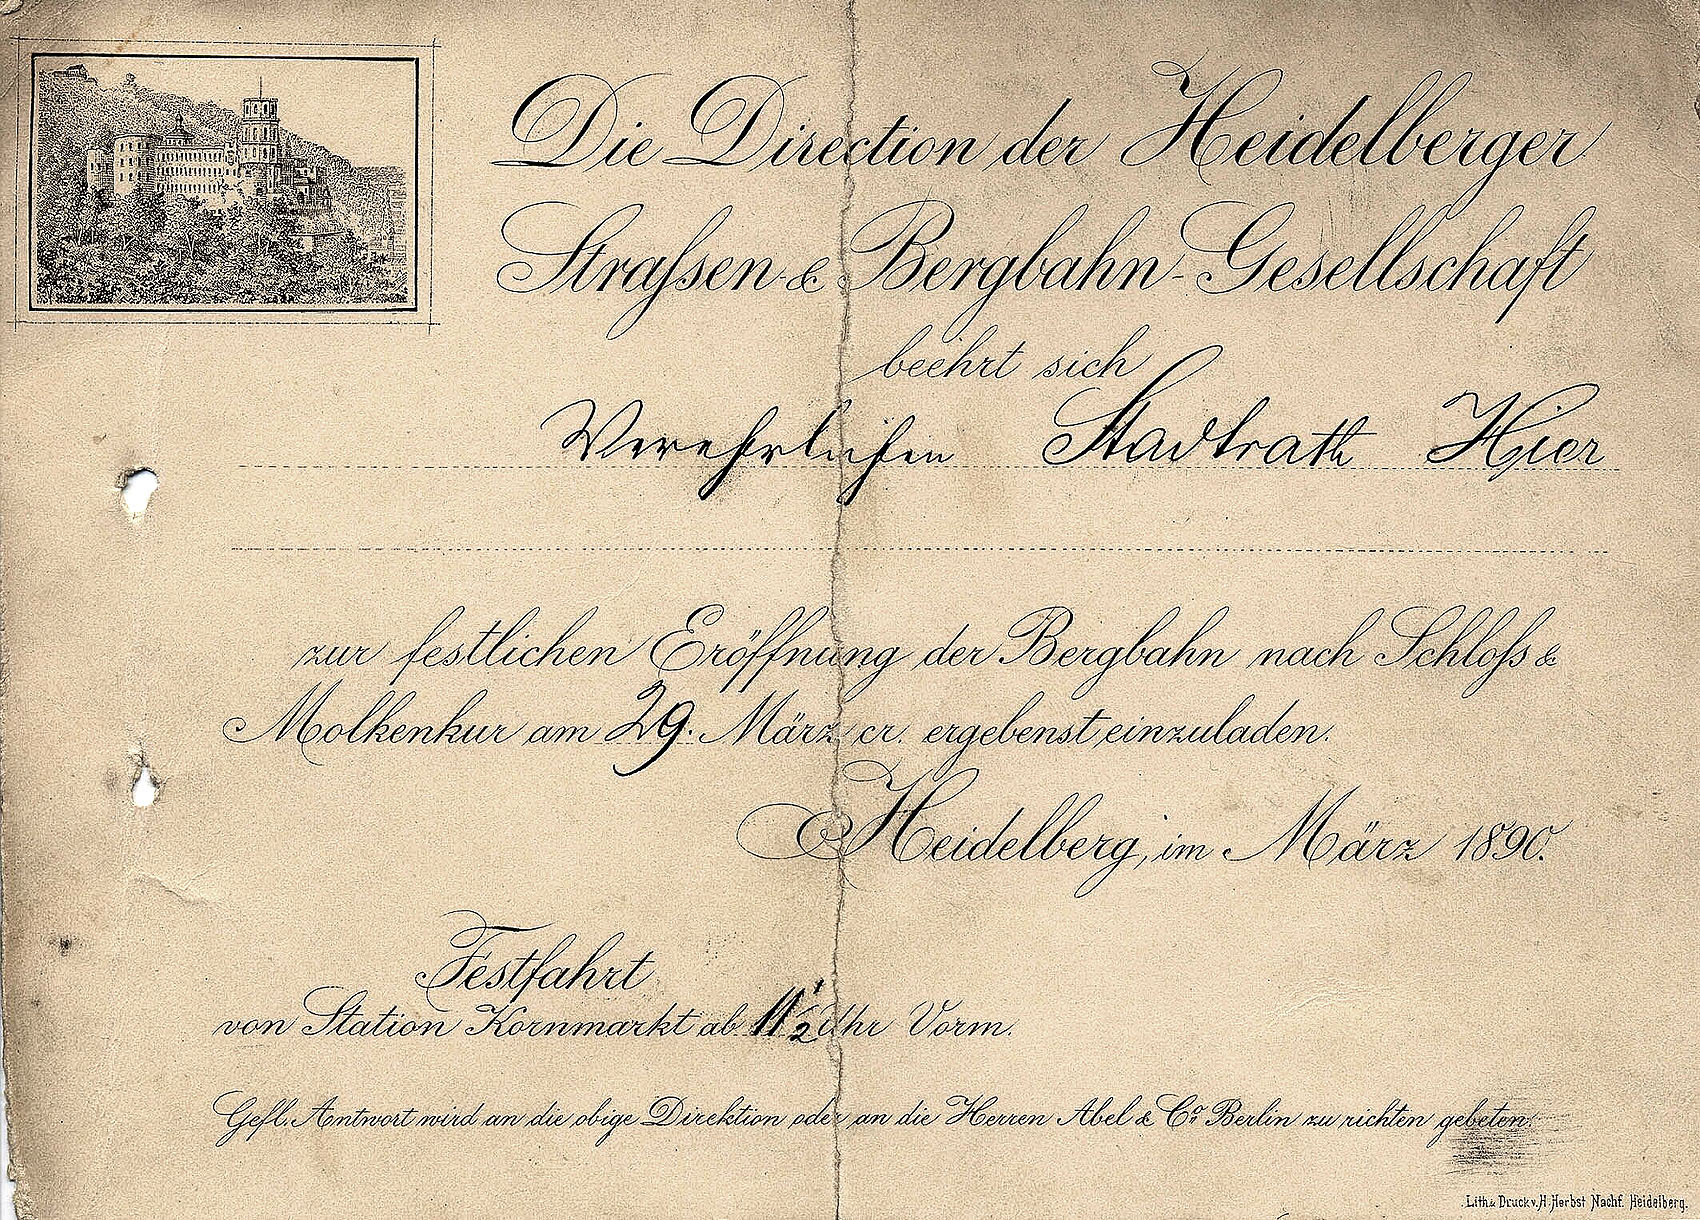 Die Direction der Heidelberger
Straſsen- & Bergbahn-Gesellschaft
beehrt sich
Verehrlichen Stadtrath Hier
zur festlichen Eröffnung der Bergbahn nach Schloſs &
Molkenkur am 29. März cr. ergebenst einzuladen.
Heidelberg, im März 1890.
Festfahrt
von Station Kornmarkt ab 11 1/2 Uhr Vorm.
Gefl. Antwort wird an die obige Direktion oder an die Herren Abel & Co Berlin zu richten gebeten.
Lith. & Druck v. H. Herbst Nachf. Heidelberg.